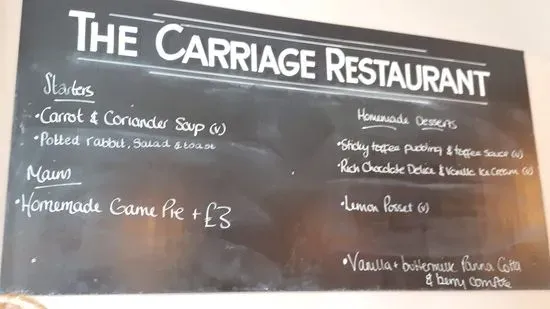 THE CARRIAGE RESTAURANT
Starters
•Carrot & Coriander Soup (v)
•Potted rabbit, Salad & toast
Mains
•Homemade Game Pie + £3
Homemade Desserts
•Sticky toffee pudding & toffee sauce (v)
•Rich Chocolate Delice & Vanilla Ice Cream (v)
•Lemon Posset (v)
•Vanilla + buttermilk Panna Cotta
& berry compote